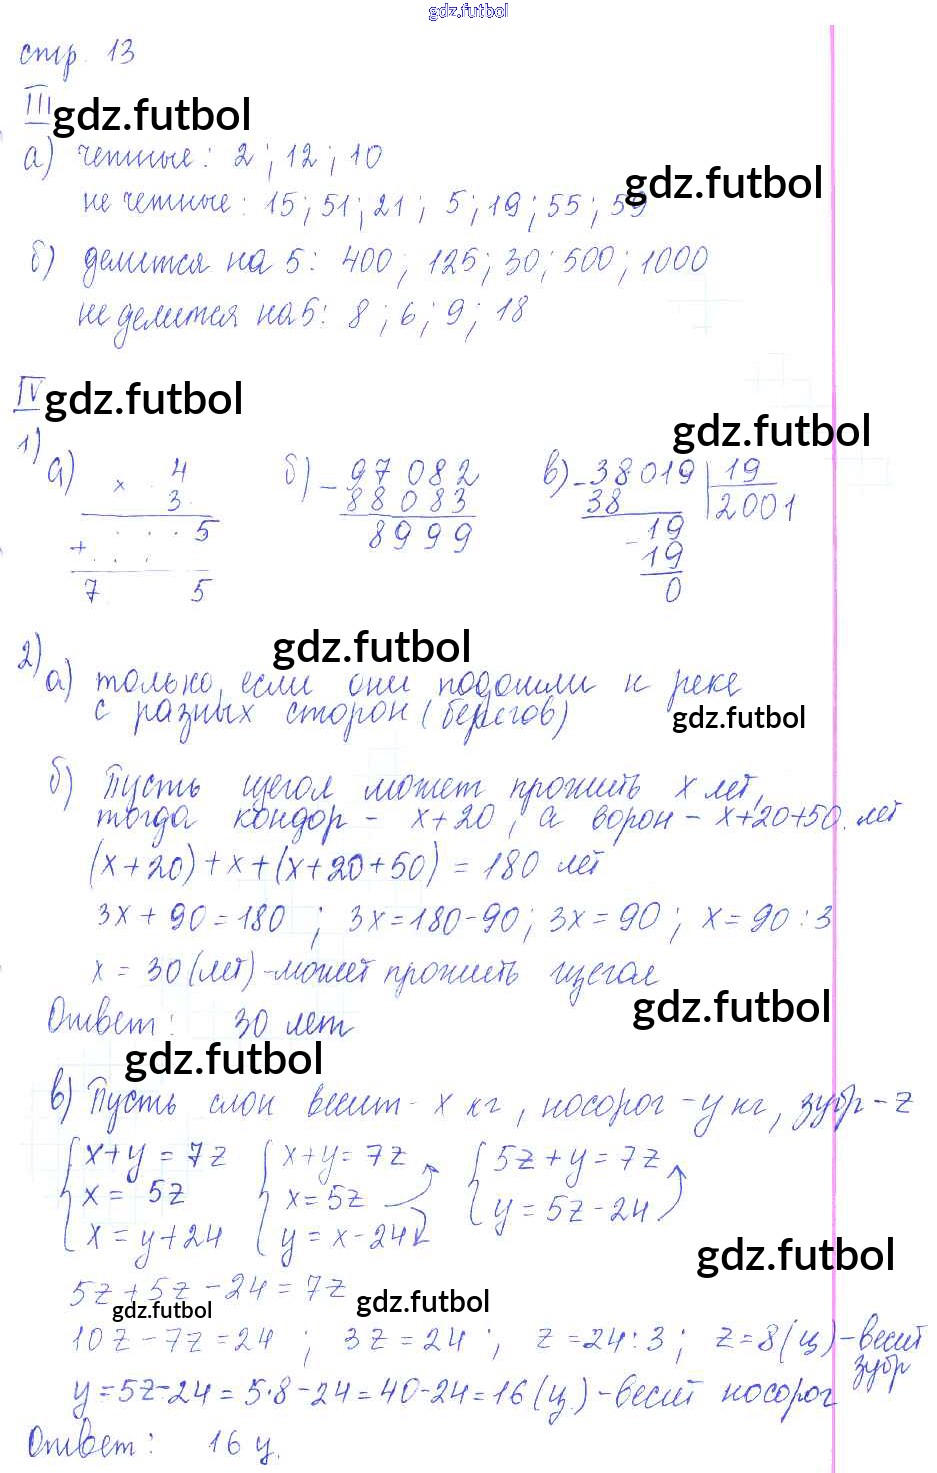 gdz.futbol
стр. 13
III gdz.futbol
а) четные: 2; 12; 10
gdz.futbol
не четные: 15; 51; 21; 5; 19; 55; 59
б) делится на 5: 400; 125; 30; 500; 1000
не делится на 5: 8; 6; 9; 18
IV gdz.futbol
gdz.futbol
1) а) × 4 б) - 97082 в) - 38019 | 19
3 88083 38 2001
· · · 5 8999 19
+ · · · - 19
7 5 0
gdz.futbol
2) а) только, если они подошли к реке
с разных сторон (берегов)
gdz.futbol
б) Пусть щегол может прожить x лет,
тогда кондор - x+20, а ворон - x+20+50 лет
(x+20)+x+(x+20+50) = 180 лет
3x+90=180; 3x=180-90; 3x=90; x=90:3
x = 30 (лет) - может прожить щегол
gdz.futbol
Ответ: 30 лет
gdz.futbol
в) Пусть слон весит - x кг, носорог - y кг, зубр - z
x+y=7z x+y=7z 5z+y=7z
x= 5z x=5z y=5z-24
x=y+24 y=x-24
gdz.futbol
5z+5z-24=7z
gdz.futbol gdz.futbol
10z-7z=24; 3z=24; z=24:3; z=8(ц) - весит
зубр
y=5z-24=5·8-24=40-24=16(ц) - весит носорог
Ответ: 16 ц.